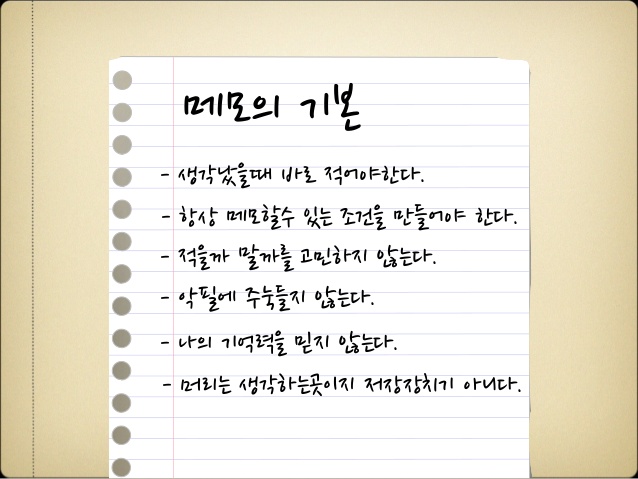 메모의 기본
- 생각났을때 바로 적어야한다.
- 항상 메모할수 있는 조건을 만들어야 한다.
- 적을까 말까를 고민하지 않는다.
- 악필에 주눅들지 않는다.
- 나의 기억력을 믿지 않는다.
- 머리는 생각하는곳이지 저장장치가 아니다.